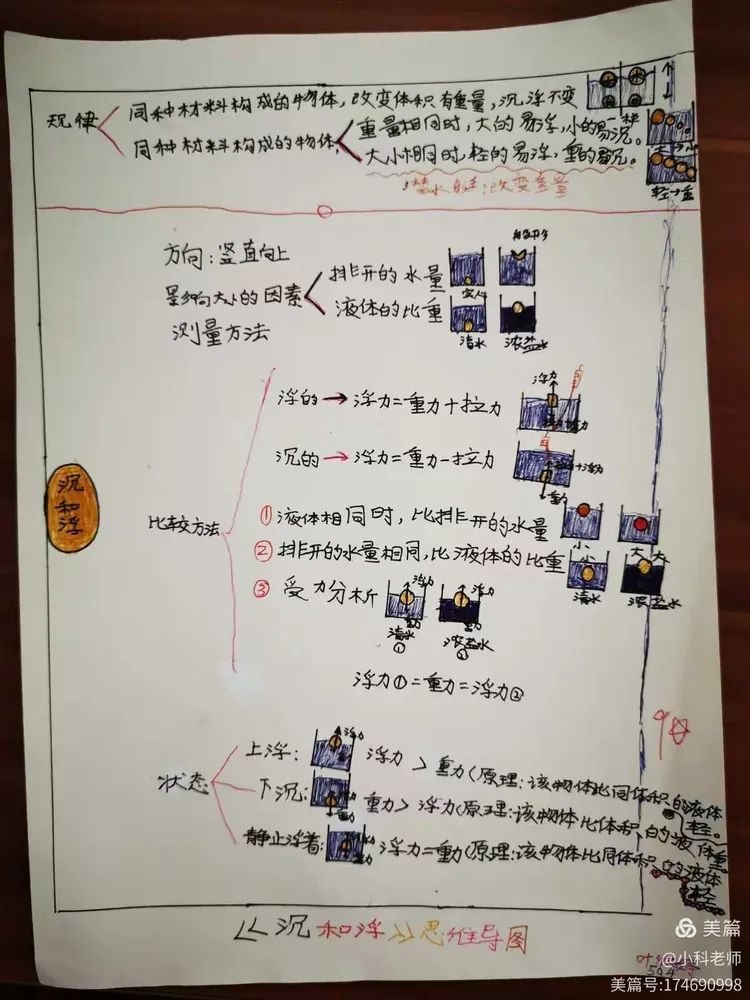 规律
同种材料构成的物体，改变体积有重量，沉浮不变
同种材料构成的物体，
重量相同时，大的易浮，小的易沉。
一样
大→小
大小相同时，轻的易浮，重的易沉。
轻→重
潜水艇：改变重量
方向：竖直向上
影响大小的因素
排开的水量
液体的比重
清水
浓盐水
测量方法
沉和浮
比较方法
浮的→浮力=重力+拉力
浮力
沉的→浮力=重力-拉力
①液体相同时，比排开的水量
小
大
②排开的水量相同，比液体的比重
小
大
清水
浓盐水
③受力分析
浮力
浮力
清水
①
浓盐水
②
浮力①=重力=浮力②
90
状态
上浮：
浮力
浮力>重力(原理：该物体比同体积的液体轻。
下沉：
重力>浮力(原理：该物体比体积的液体重。
静止浮着：
浮力=重力(原理：该物体比同体积的液体轻
《沉和浮》思维导图
叶
504
美篇
@小科老师
美篇号:174690998